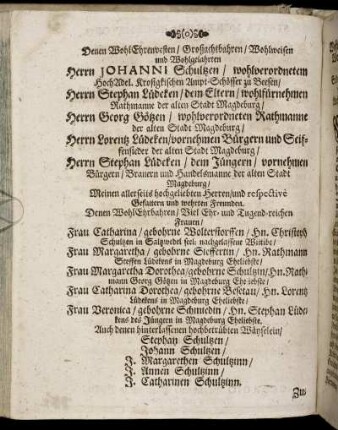 Denen WohlEhrenvesten/ Großachtbahren/ Wohlweisen
und Wohlgelahrten
Herrn JOHANNI Schultzen/ wohlverordnetem
HochAdel. Krosigkischen Ampt-Schösser zu Beesen/
Herrn Stephan Lüdeken/ dem Eltern/ wohlfürnehmen
Rathmanne der alten Stadt Magdeburg/
Herrn Georg Götzen/ wohlverordneten Rathmanne
der alten Stadt Magdeburg/
Herrn Lorentz Lüdeken/vornehmen Bürgern und Seif-
fensieder der alten Stadt Magdeburg/
Herrn Stephan Lüdeken/ dem Jüngern/ vornehmen
Bürgern/ Brauern und Handelsmanne der alten Stadt
Magdeburg/
Meinen allerseits hochgeliebten Herren/und respectivè
Gefattern und wehrten Freunden.
Denen WohlEhrbahren/ Viel Ehr- und Tugend-reichen
Frauen/
Frau Catharina/ gebohrne Wolterstorffen/ Hn. Christoph
Schultzen in Saltzwedel seel. nachgelassene Wittibe/
Frau Margaretha/ gebohrne Sieffertin/ Hn. Rathmann
Steffen Lüdekens in Magdeburg Eheliebste/
Frau Margaretha Dorothea/gebohrne Schultzin/Hn.Rath-
mann Georg Götzen in Magdeburg Eheliebste/
Frau Catharina Dorothea/ gebohrne Hn. Lorentz
Lüdekens in Magdeburg Eheliebste/
Frau Veronica/ gebohrne Schmiedin/ Hn. Stephan Lüde-
kens des Jüngern in Magdeburg Eheliebste.
Auch denen hinterlassenen hochbetrübten Wäyselein/
Stephan Schultzen/
Johann Schultzen/
J. Margarethen Schultzinn/
J. Annen Schultzinn/
J. Catharinen Schultzinn.
Zu